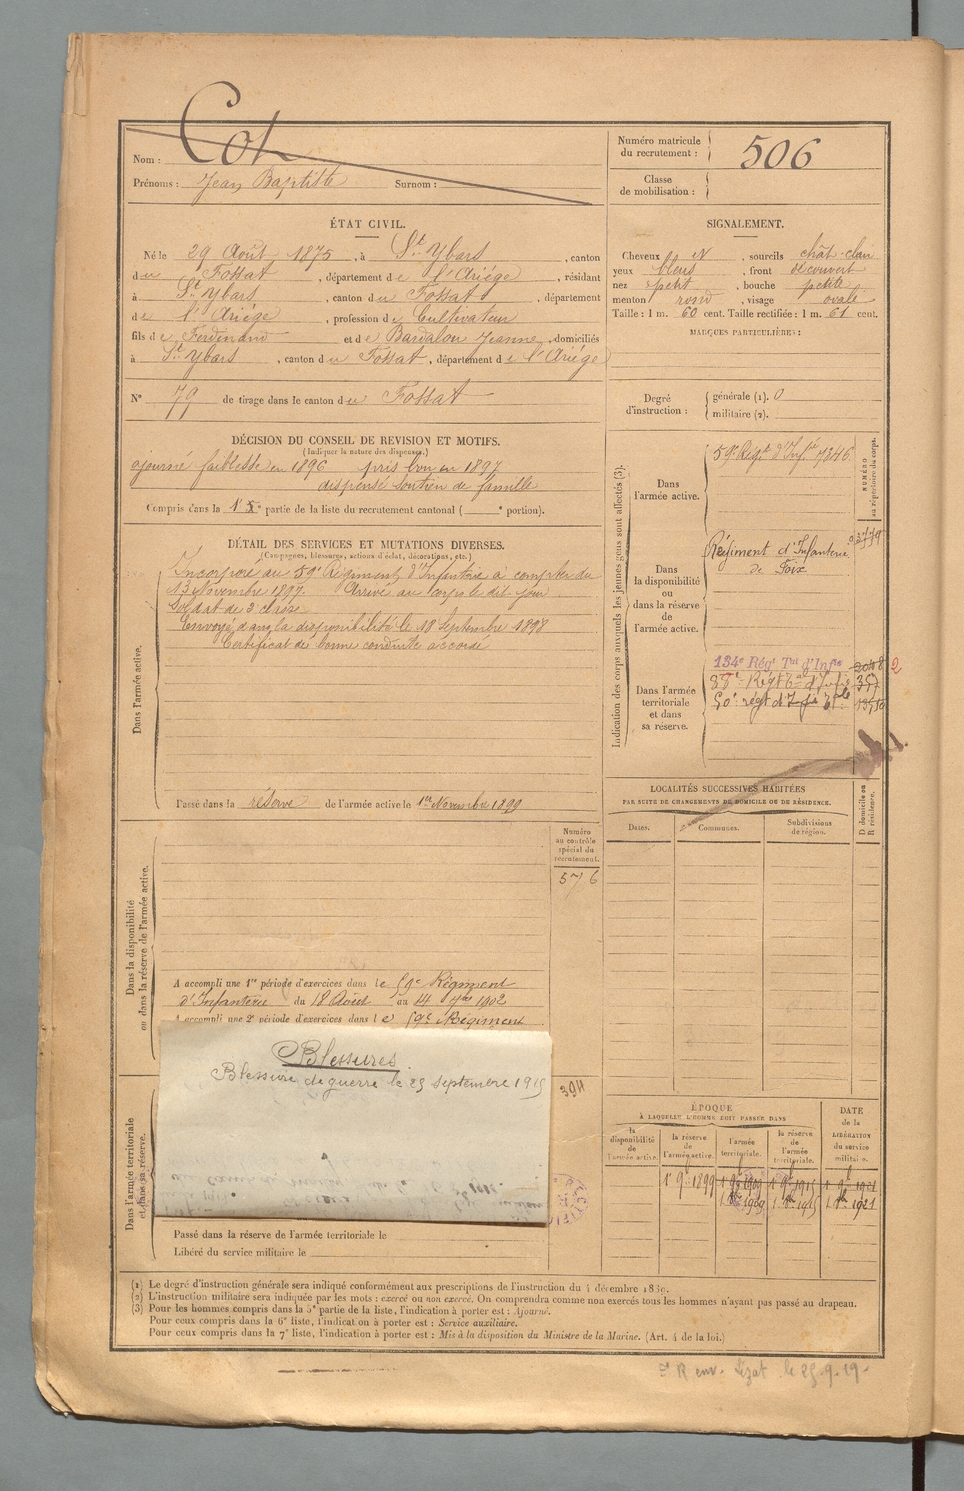 Nom : Cot
Prénoms : Jean Baptiste Surnom :
Numéro matricule du recrutement : 506
Classe de mobilisation :
ÉTAT CIVIL.
Né le 29 Août 1875, à St Ybars, canton
du Fossat, département de l'Ariége, résidant
à St Ybars, canton du Fossat, département
de l'Ariége, profession de Cultivateur
fils de Ferdinand et de Bardalon Jeanne, domiciliés
à St Ybars, canton du Fossat, département de l'Ariége
N° 79 de tirage dans le canton du Fossat
DÉCISION DU CONSEIL DE REVISION ET MOTIFS.
(Indiquer la nature des dispenses.)
ajourné faiblesse en 1896 pris bon en 1897
dispensé soutien de famille
Compris dans la 1e partie de la liste du recrutement cantonal ( e portion).
SIGNALEMENT.
Cheveux et, sourcils chât-clair
yeux bleus, front découvert
nez petit, bouche petite
menton rond, visage ovale
Taille : 1 m. 60 cent. Taille rectifiée : 1 m. 61 cent.
MARQUES PARTICULIÈRES :
Degré d'instruction : générale (1). 0
militaire (2).
DÉTAIL DES SERVICES ET MUTATIONS DIVERSES.
(Campagnes, blessures, actions d'éclat, décorations, etc.)
Dans l'armée active.
Incorporé au 59e Régiment d'Infanterie à compter du
13 Novembre 1897. Arrivé au corps le dit jour
Soldat de 2e classe
Envoyé dans la disponibilité le 18 Septembre 1898
Certificat de bonne conduite accordé
Passé dans la réserve de l'armée active le 1er Novembre 1899
Indication des corps auxquels les jeunes gens sont affectés (3).
NUMÉRO au répertoire du corps.
Dans l'armée active.
59e Régt d'Infie 7846
Dans la disponibilité ou dans la réserve de l'armée active.
Régiment d'Infanterie
de Foix
Dans l'armée territoriale et dans sa réserve.
134e Régt Tal d'Infie 2048 2
LOCALITÉS SUCCESSIVES HABITÉES
PAR SUITE DE CHANGEMENTS DE DOMICILE OU DE RÉSIDENCE.
Dates. Communes. Subdivisions de région. D domicile ou R résidence.
Dans la disponibilité ou dans la réserve de l'armée active.
Numéro au contrôle spécial du recrutement.
576
A accompli une 1re période d'exercices dans le 59e Régiment
d'Infanterie du 18 Août au 14 7bre 1902
A accompli une 2e période d'exercices dans le 59e Régiment
Blessures
Blessure de guerre le 25 Septembre 1915
394
Dans l'armée territoriale et dans sa réserve.
Passé dans la réserve de l'armée territoriale le
Libéré du service militaire le
ÉPOQUE
À LAQUELLE L'HOMME DOIT PASSER DANS
DATE de la LIBÉRATION du service militaire.
la disponibilité de l'armée active.
la réserve de l'armée active.
l'armée territoriale.
la réserve de l'armée territoriale.
1er 9bre 1899
(1) Le degré d'instruction générale sera indiqué conformément aux prescriptions de l'instruction du 4 décembre 1889.
(2) L'instruction militaire sera indiquée par les mots : exercé ou non exercé. On comprendra comme non exercés tous les hommes n'ayant pas passé au drapeau.
(3) Pour les hommes compris dans la 5e partie de la liste, l'indication à porter est : Ajourné.
Pour ceux compris dans la 6e liste, l'indication à porter est : Service auxiliaire.
Pour ceux compris dans la 7e liste, l'indication à porter est : Mis à la disposition du Ministre de la Marine. (Art. 4 de la loi.)